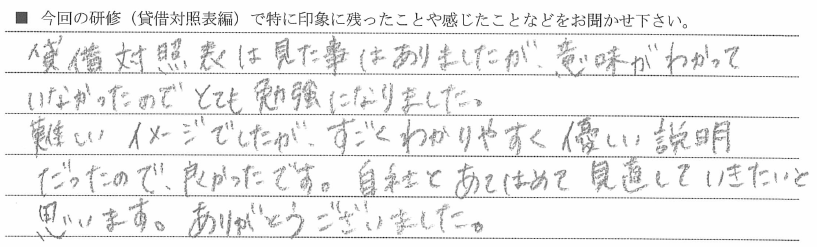 ■ 今回の研修（貸借対照表編）で特に印象に残ったことや感じたことなどをお聞かせ下さい。
貸借対照表は見た事はありましたが、意味がわかって
いなかったので とても勉強になりました。
難しい イメージでしたが、すごくわかりやすく優しい説明
だったので、良かったです。自社とあてはめて見直していきたいと
思います。ありがとうございました。